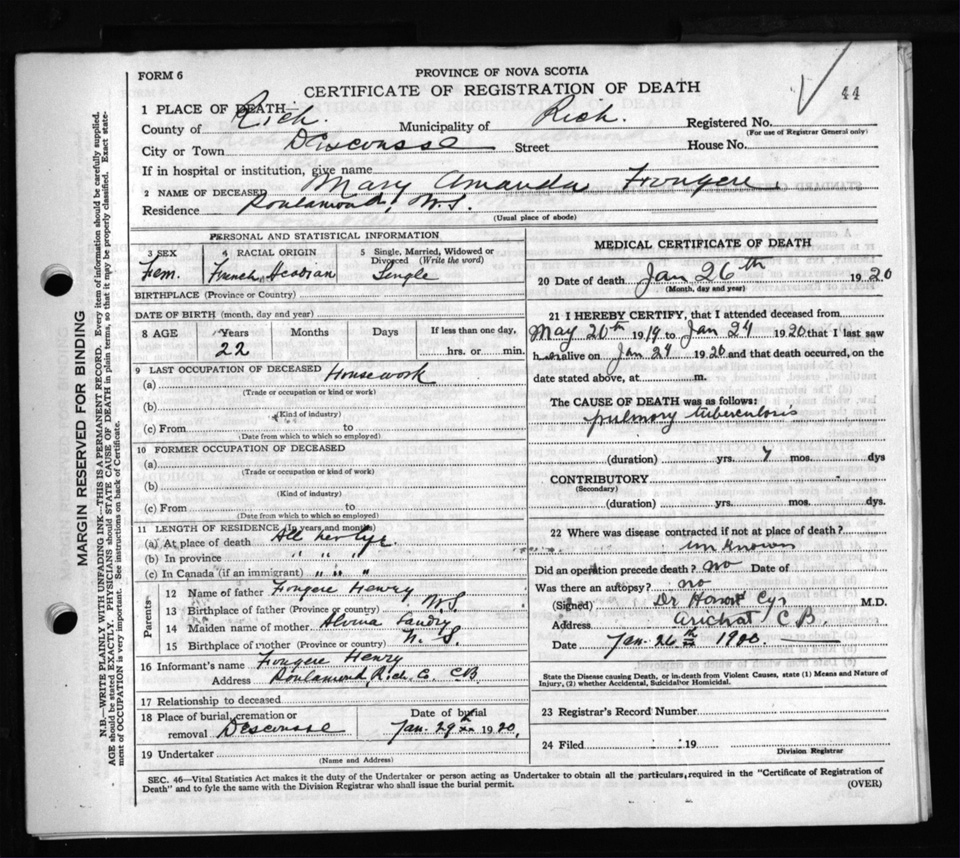 FORM 6
PROVINCE OF NOVA SCOTIA
CERTIFICATE OF REGISTRATION OF DEATH
44
1 PLACE OF DEATH—
County of Rich. Municipality of Rich. Registered No.
(For use of Registrar General only)
City or Town D'Escousse Street House No.
If in hospital or institution, give name
2 NAME OF DECEASED Mary Amanda Fougere
Residence Poulamond, N.S.
(Usual place of abode)
PERSONAL AND STATISTICAL INFORMATION
3 SEX Fem.
4 RACIAL ORIGIN French Acadian
5 Single, Married, Widowed or Divorced (Write the word) Single
BIRTHPLACE (Province or Country)
DATE OF BIRTH (month, day and year)
8 AGE Years Months Days If less than one day,
22 hrs. or min.
9 LAST OCCUPATION OF DECEASED
(a) Housework
(Trade or occupation or kind or work)
(b)
(Kind of industry)
(c) From to
(Date from which to which so employed)
10 FORMER OCCUPATION OF DECEASED
(a)
(Trade or occupation or kind of work)
(b)
(Kind of industry)
(c) From to
(Date from which to which so employed)
11 LENGTH OF RESIDENCE (In years and months)
(a) At place of death All her life
(b) In province " " "
(c) In Canada (if an immigrant) " " "
Parents
12 Name of father Fougere Henry
13 Birthplace of father (Province or country) N.S.
14 Maiden name of mother Landry
15 Birthplace of mother (Province or country) N. S.
16 Informant's name Fougere Henry
Address Poulamond, Rich. Co. CB
17 Relationship to deceased
18 Place of burial, cremation or removal Descousse
Date of burial Jan. 29th 1920.
19 Undertaker
(Name and Address)
MEDICAL CERTIFICATE OF DEATH
20 Date of death Jan 26th 1920
(Month, day and year)
21 I HEREBY CERTIFY, that I attended deceased from
May 20th 1919 to Jan 24 1920 that I last saw
h alive on Jan 24 1920 and that death occurred, on the
date stated above, at m.
The CAUSE OF DEATH was as follows:
pulmory tuberculosis
(duration) yrs. 7 mos. dys
CONTRIBUTORY
(Secondary)
(duration) yrs. mos. dys.
22 Where was disease contracted if not at place of death?
unknown
Did an operation precede death? no Date of
Was there an autopsy? no
(Signed) Dr Cyr M.D.
Address Arichat C.B.
Date Jan. 26th 1900
State the Disease causing Death, or in death from Violent Causes, state (1) Means and Nature of
Injury, (2) whether Accidental, Suicidal or Homicidal.
23 Registrar's Record Number
24 Filed 19
Division Registrar
SEC. 46—Vital Statistics Act makes it the duty of the Undertaker or person acting as Undertaker to obtain all the particulars, required in the "Certificate of Registration of
Death" and to fyle the same with the Division Registrar who shall issue the burial permit.
(OVER)
MARGIN RESERVED FOR BINDING
N.B.—WRITE PLAINLY WITH UNFADING INK—THIS IS A PERMANENT RECORD. Every item of information should be carefully supplied.
AGE should be stated EXACTLY. PHYSICIANS should STATE CAUSE OF DEATH in plain terms, so that it may be properly classified. Exact state-
ment of OCCUPATION is very important. See instructions on back of Certificate.